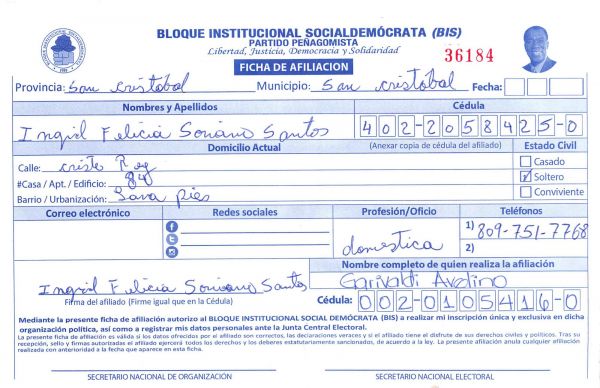 BLOQUE INSTITUCIONAL SOCIALDEMÓCRATA (BIS)
PARTIDO PEÑAGOMISTA
Libertad, Justicia, Democracia y Solidaridad
36184
FICHA DE AFILIACION
Provincia: San Cristobal Municipio: San cristobal Fecha:
Nombres y Apellidos Cédula
Ingrid Felicia Soriano Santos 402-2058425-0
Domicilio Actual (Anexar copia de cédula del afiliado) Estado Civil
Calle: cristo Rey Casado
#Casa / Apt. / Edificio: 84 Soltero
Barrio / Urbanización: Conviviente
Correo electrónico Redes sociales Profesión/Oficio Teléfonos
domestica 1) 809-751-7768
2)
Nombre completo de quien realiza la afiliación
Ingrid Felicia Soriano Santos Garivaldi Avelino
Firma del afiliado (Firme igual que en la Cédula) Cédula: 002-0105416-0
Mediante la presente ficha de afiliación autorizo al BLOQUE INSTITUCIONAL SOCIAL DEMÓCRATA (BIS) a realizar mi inscripción única y exclusiva en dicha
organización política, así como a registrar mis datos personales ante la Junta Central Electoral.
La presente ficha de afiliación es válida si los datos ofrecidos por el afiliado son correctos, las declaraciones veraces y si el afiliado tiene el disfrute de sus derechos civiles y políticos. Tras su
recepción, sello y firmas autorizadas el afiliado ejercerá todos los derechos y los deberes estatutariamente sancionados, de acuerdo a la ley. La presente afiliación anula cualquier afiliación
realizada con anterioridad a la fecha que aparece en esta ficha.
SECRETARIO NACIONAL DE ORGANIZACIÓN SECRETARIO NACIONAL ELECTORAL